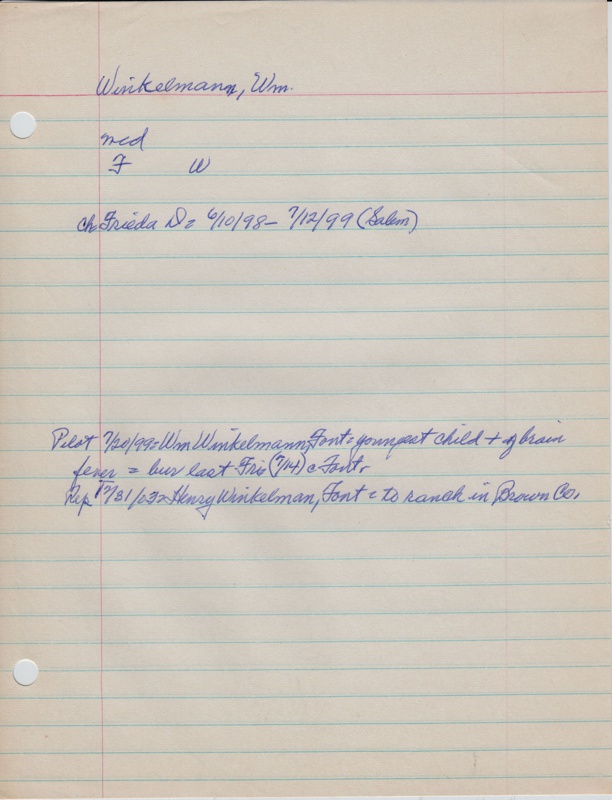 Winkelmann, Wm.
mcd
F W
ch Frieda D = 6/10/98 - 7/12/99 (Salem)
Pilot 7/20/99 = Wm Winkelmann, Font = youngest child + of brain
fever = bur last Fri (7/14) c Font.
Rep 12/31/03 = Henry Winkelman, Font = to ranch in Brown Co.